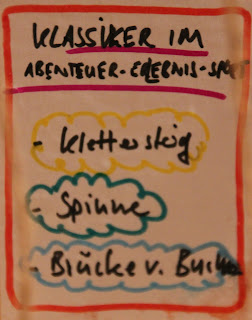 KLASSIKER IM
ABENTEUER-ERLEBNIS-SPORT
- Klettersteig
- Spinne
- Brücke v.